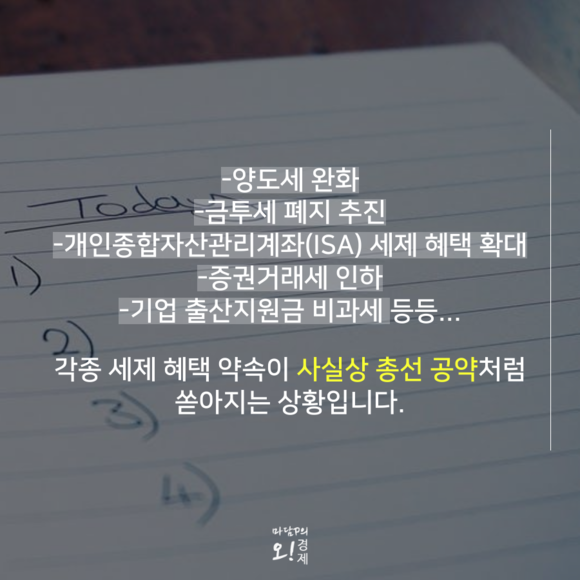 -양도세 완화
Today
-금투세 폐지 추진
-개인종합자산관리계좌(ISA) 세제 혜택 확대
1)
-증권거래세 인하
-기업 출산지원금 비과세 등등...
2)
각종 세제 혜택 약속이 사실상 총선 공약처럼
쏟아지는 상황입니다.
3)
4)
마담P의
오!경제